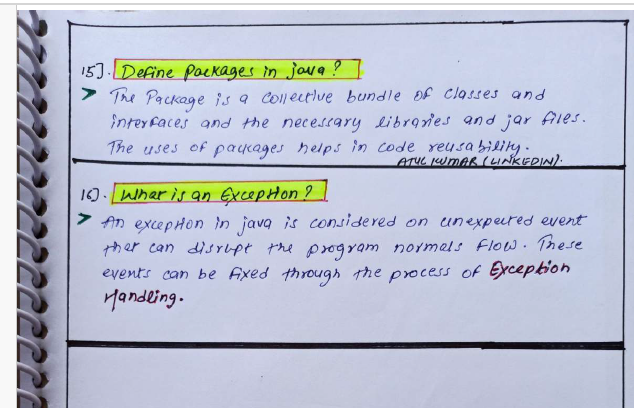 15]. Define Packages in java?
> The Package is a collective bundle of classes and
interfaces and the necessary libraries and jar files.
The uses of packages helps in code reusability.
ATUL KUMAR (LINKEDIN).
16). What is an Exception?
> An exception in java is considered on unexpected event
that can disrupt the program normals flow. These
events can be fixed through the process of Exception
Handling.